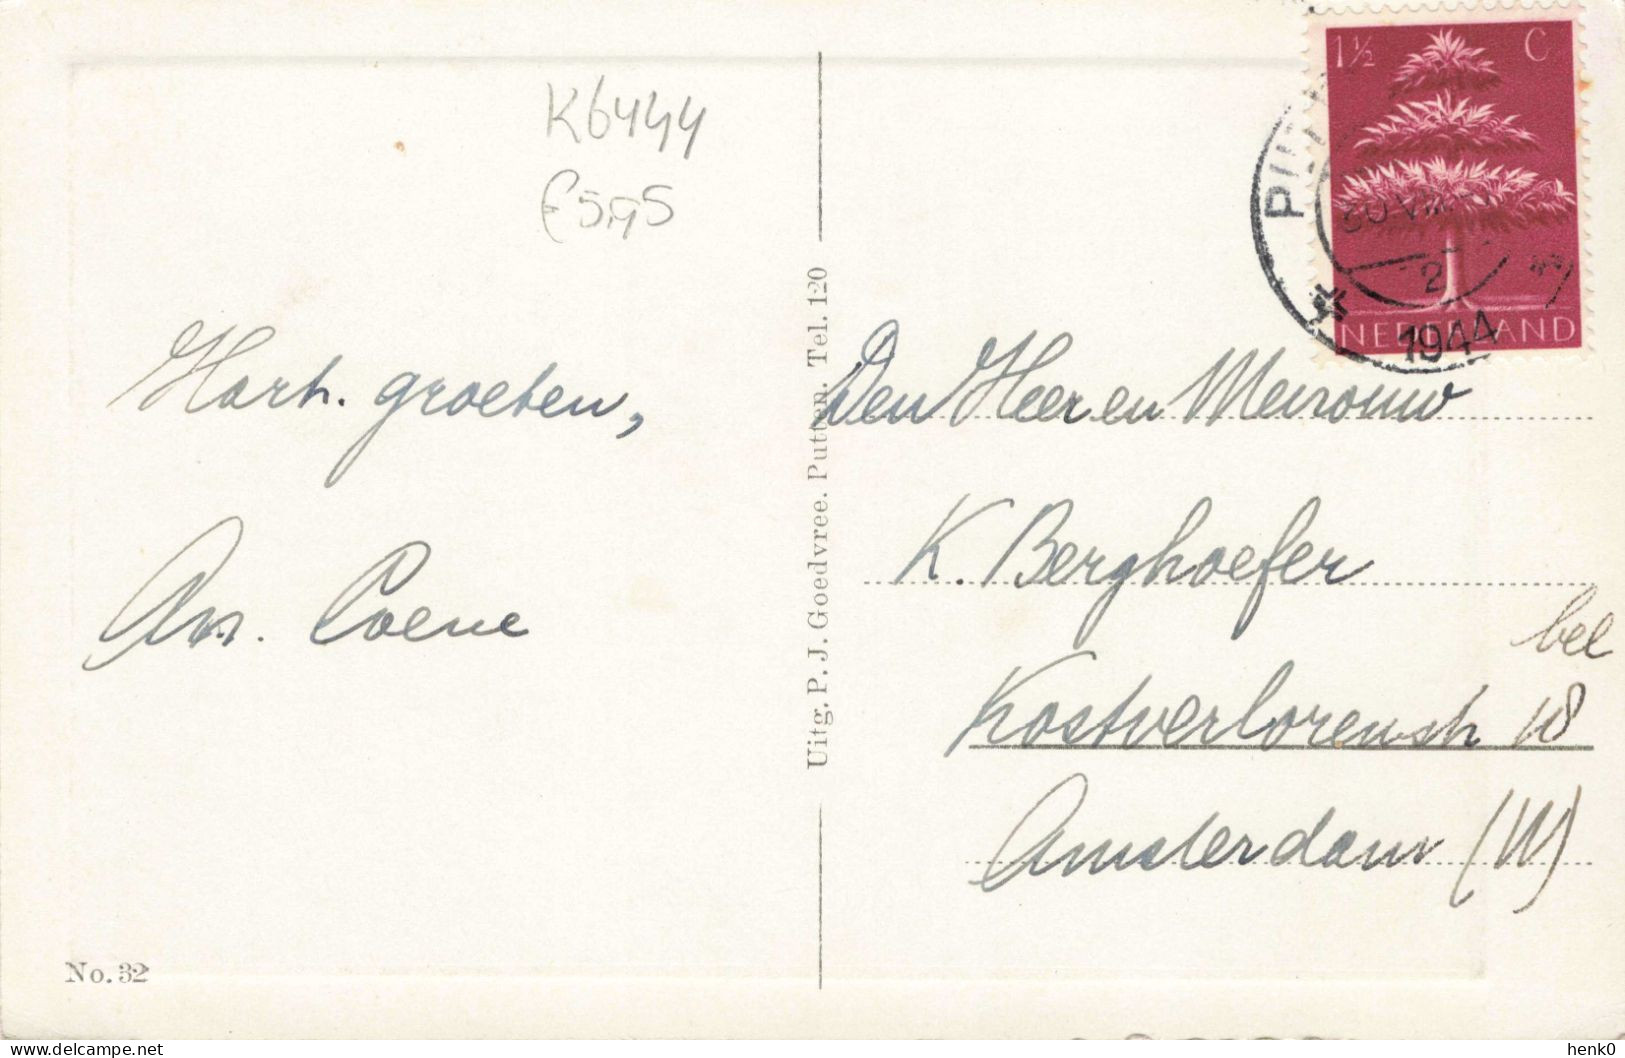 K6444
€5,95
Hart. groeten,
An. Coene
No. 32
Uitg. P. J. Goedvree. Putten. Tel. 120
1½ C
NEDERLAND
30 VIII
2
1944
Den Heer en Mevrouw
K. Berghoefer
bel
Kostverlorenstr 18
Amsterdam (W)
henk0